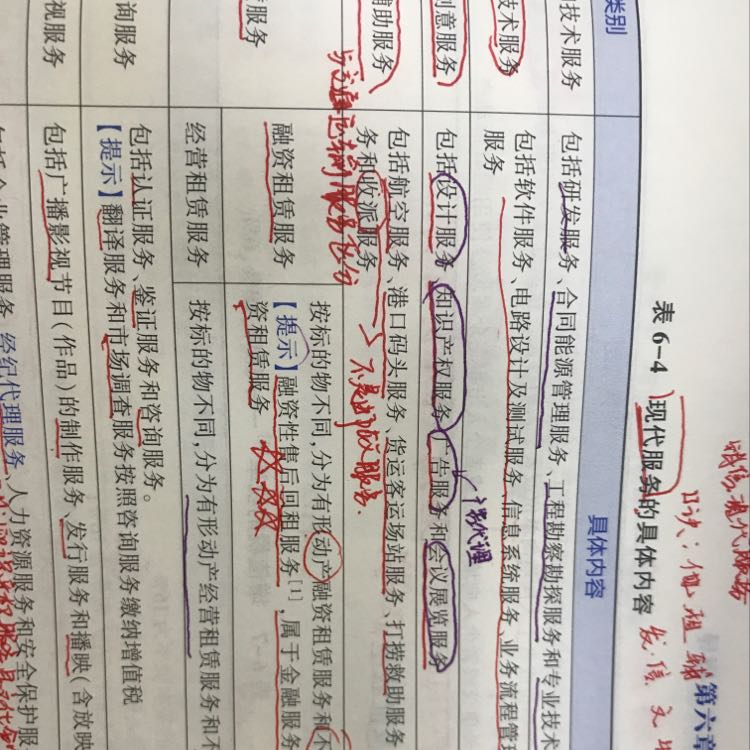 第六章
表 6-4 现代服务的具体内容
类别
具体内容
技术服务
包括研发服务、合同能源管理服务、工程勘察勘探服务和专业技术
技术服务
包括软件服务、电路设计及测试服务、信息系统服务、业务流程管
服务
创意服务
包括设计服务、知识产权服务、广告服务和会议展览服务
不含代理
辅助服务
包括航空服务、港口码头服务、货运客运场站服务、打捞救助服务
务和收派服务
不是邮政服务
服务
融资租赁服务
按标的物不同,分为有形动产融资租赁服务和不
【提示】融资性售后回租服务[1],属于金融服务
资租赁服务
经营租赁服务
按标的物不同,分为有形动产经营租赁服务和不
询服务
包括认证服务、鉴证服务和咨询服务。
【提示】翻译服务和市场调查服务按照咨询服务缴纳增值税
视服务
包括广播影视节目(作品)的制作服务、发行服务和播映(含放映
包括企业管理服务、经纪代理服务、人力资源服务和安全保护服